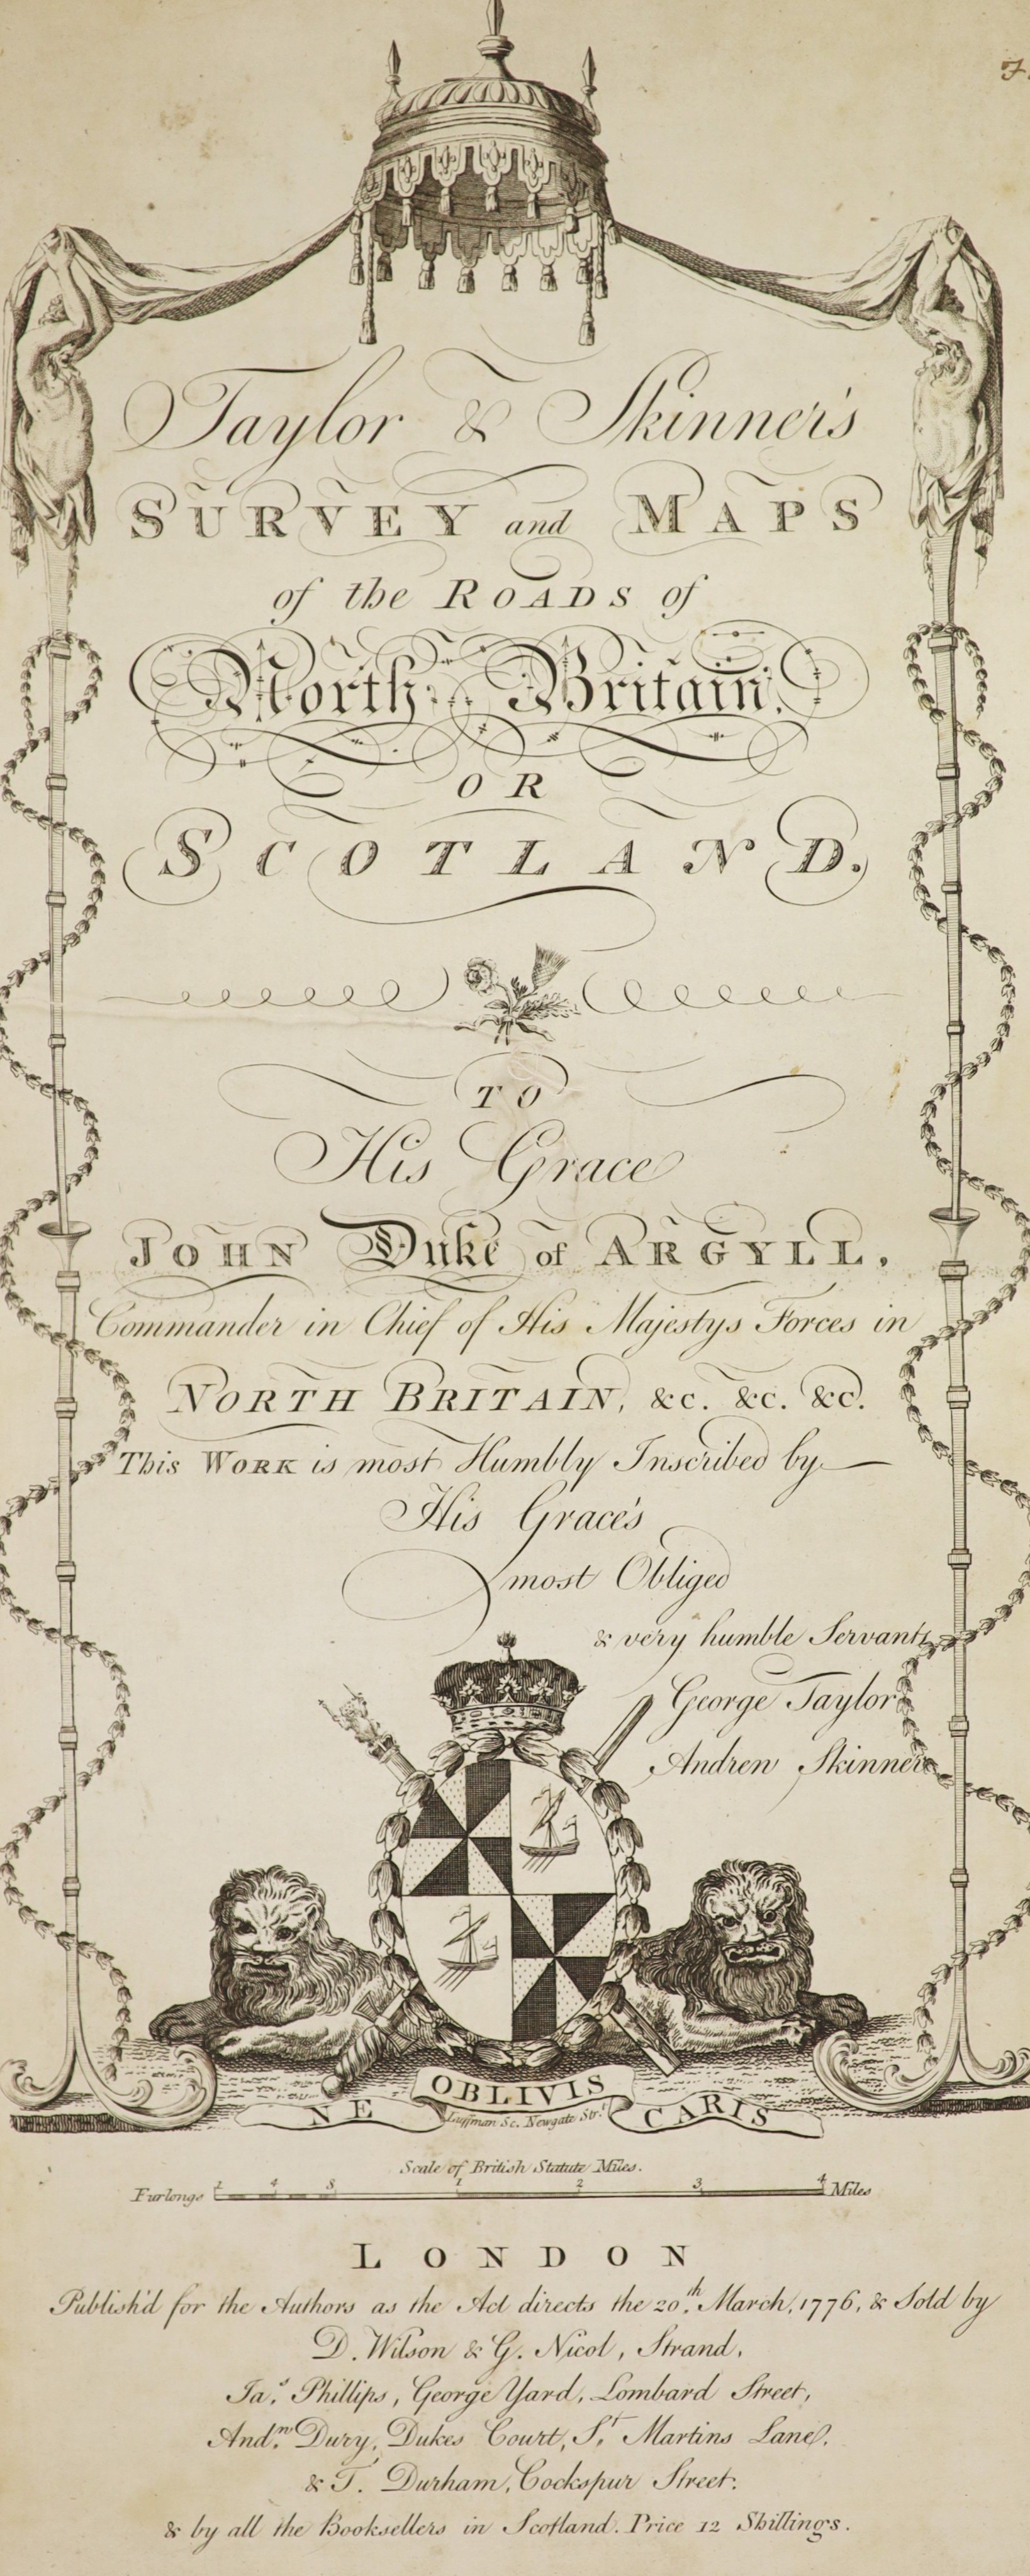 Taylor & Skinner's
SURVEY and MAPS
of the ROADS of
North Britain.
OR
SCOTLAND.
TO
His Grace
JOHN Duke of ARGYLL,
Commander in Chief of His Majestys Forces in
NORTH BRITAIN, &c. &c. &c.
This WORK is most Humbly Inscribed by
His Grace's
most Obliged
& very humble Servants
George Taylor
Andrew Skinner
NE OBLIVIS CARIS
Luffman Sc. Newgate Str.t
Scale of British Statute Miles.
Furlongs 1 4 8 1 2 3 4 Miles
LONDON
Publish'd for the Authors as the Act directs the 20.th March, 1776, & Sold by
D. Wilson & G. Nicol, Strand,
Ja.s Phillips, George Yard, Lombard Street,
And.w Dury, Dukes Court, S.t Martins Lane,
& T. Durham, Cockspur Street.
& by all the Booksellers in Scotland. Price 12 Shillings.